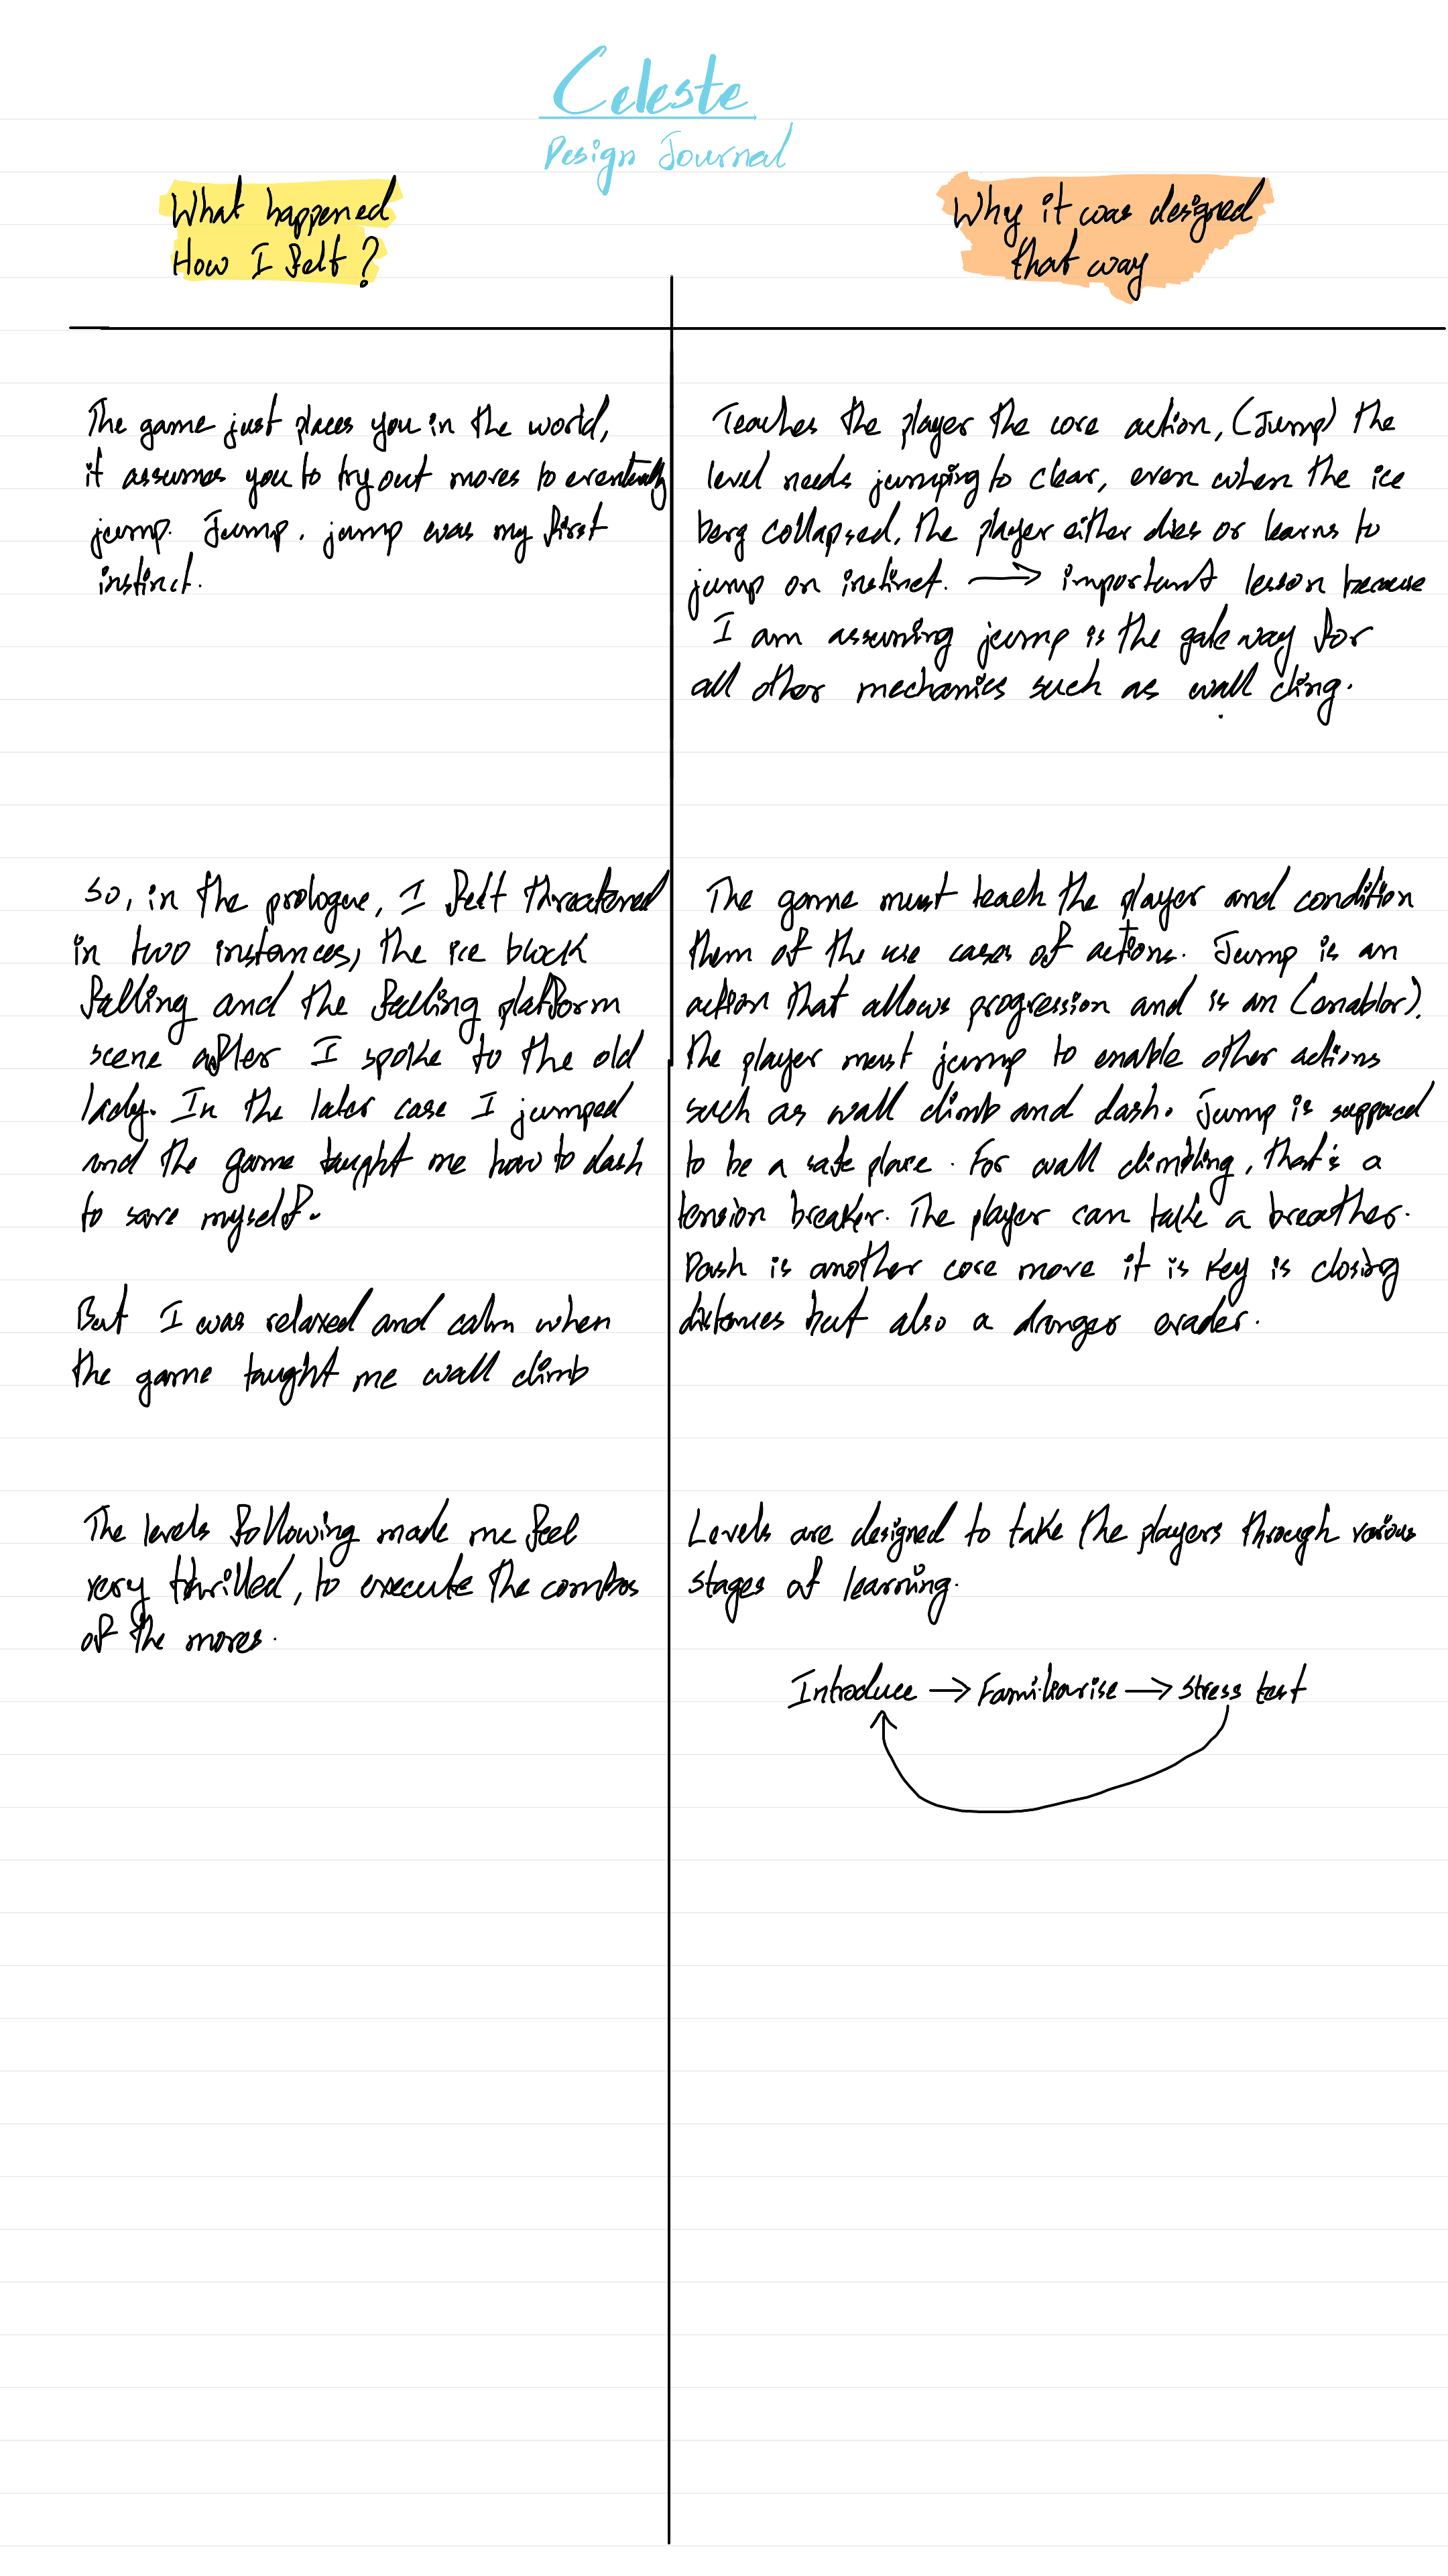 Celeste
Design Journal
What happened
How I felt?
Why it was designed
that way
The game just places you in the world,
it assumes you to try out moves to eventually
jump. Jump, jump was my first
instinct.
Teaches the player the core action, (Jump) the
level needs jumping to clear, even when the ice
berg collapsed, the player either dies or learns to
jump on instinct. → important lesson because
I am assuming jump is the gate way for
all other mechanics such as wall cling.
So, in the prologue, I felt threatened
in two instances, the ice block
falling and the falling platform
scene after I spoke to the old
lady. In the later case I jumped
and the game taught me how to dash
to save myself.
But I was relaxed and calm when
the game taught me wall climb
The game must teach the player and condition
them of the use cases of actions. Jump is an
action that allows progression and is an (enabler).
The player must jump to enable other actions
such as wall climb and dash. Jump is supposed
to be a safe place. For wall climbing, that's a
tension breaker. The player can take a breather.
Dash is another core move it is key is closing
distances but also a danger evader.
The levels following made me feel
very thrilled, to execute the combos
of the moves.
Levels are designed to take the players through various
stages of learning.
Introduce → Familiarise → Stress test